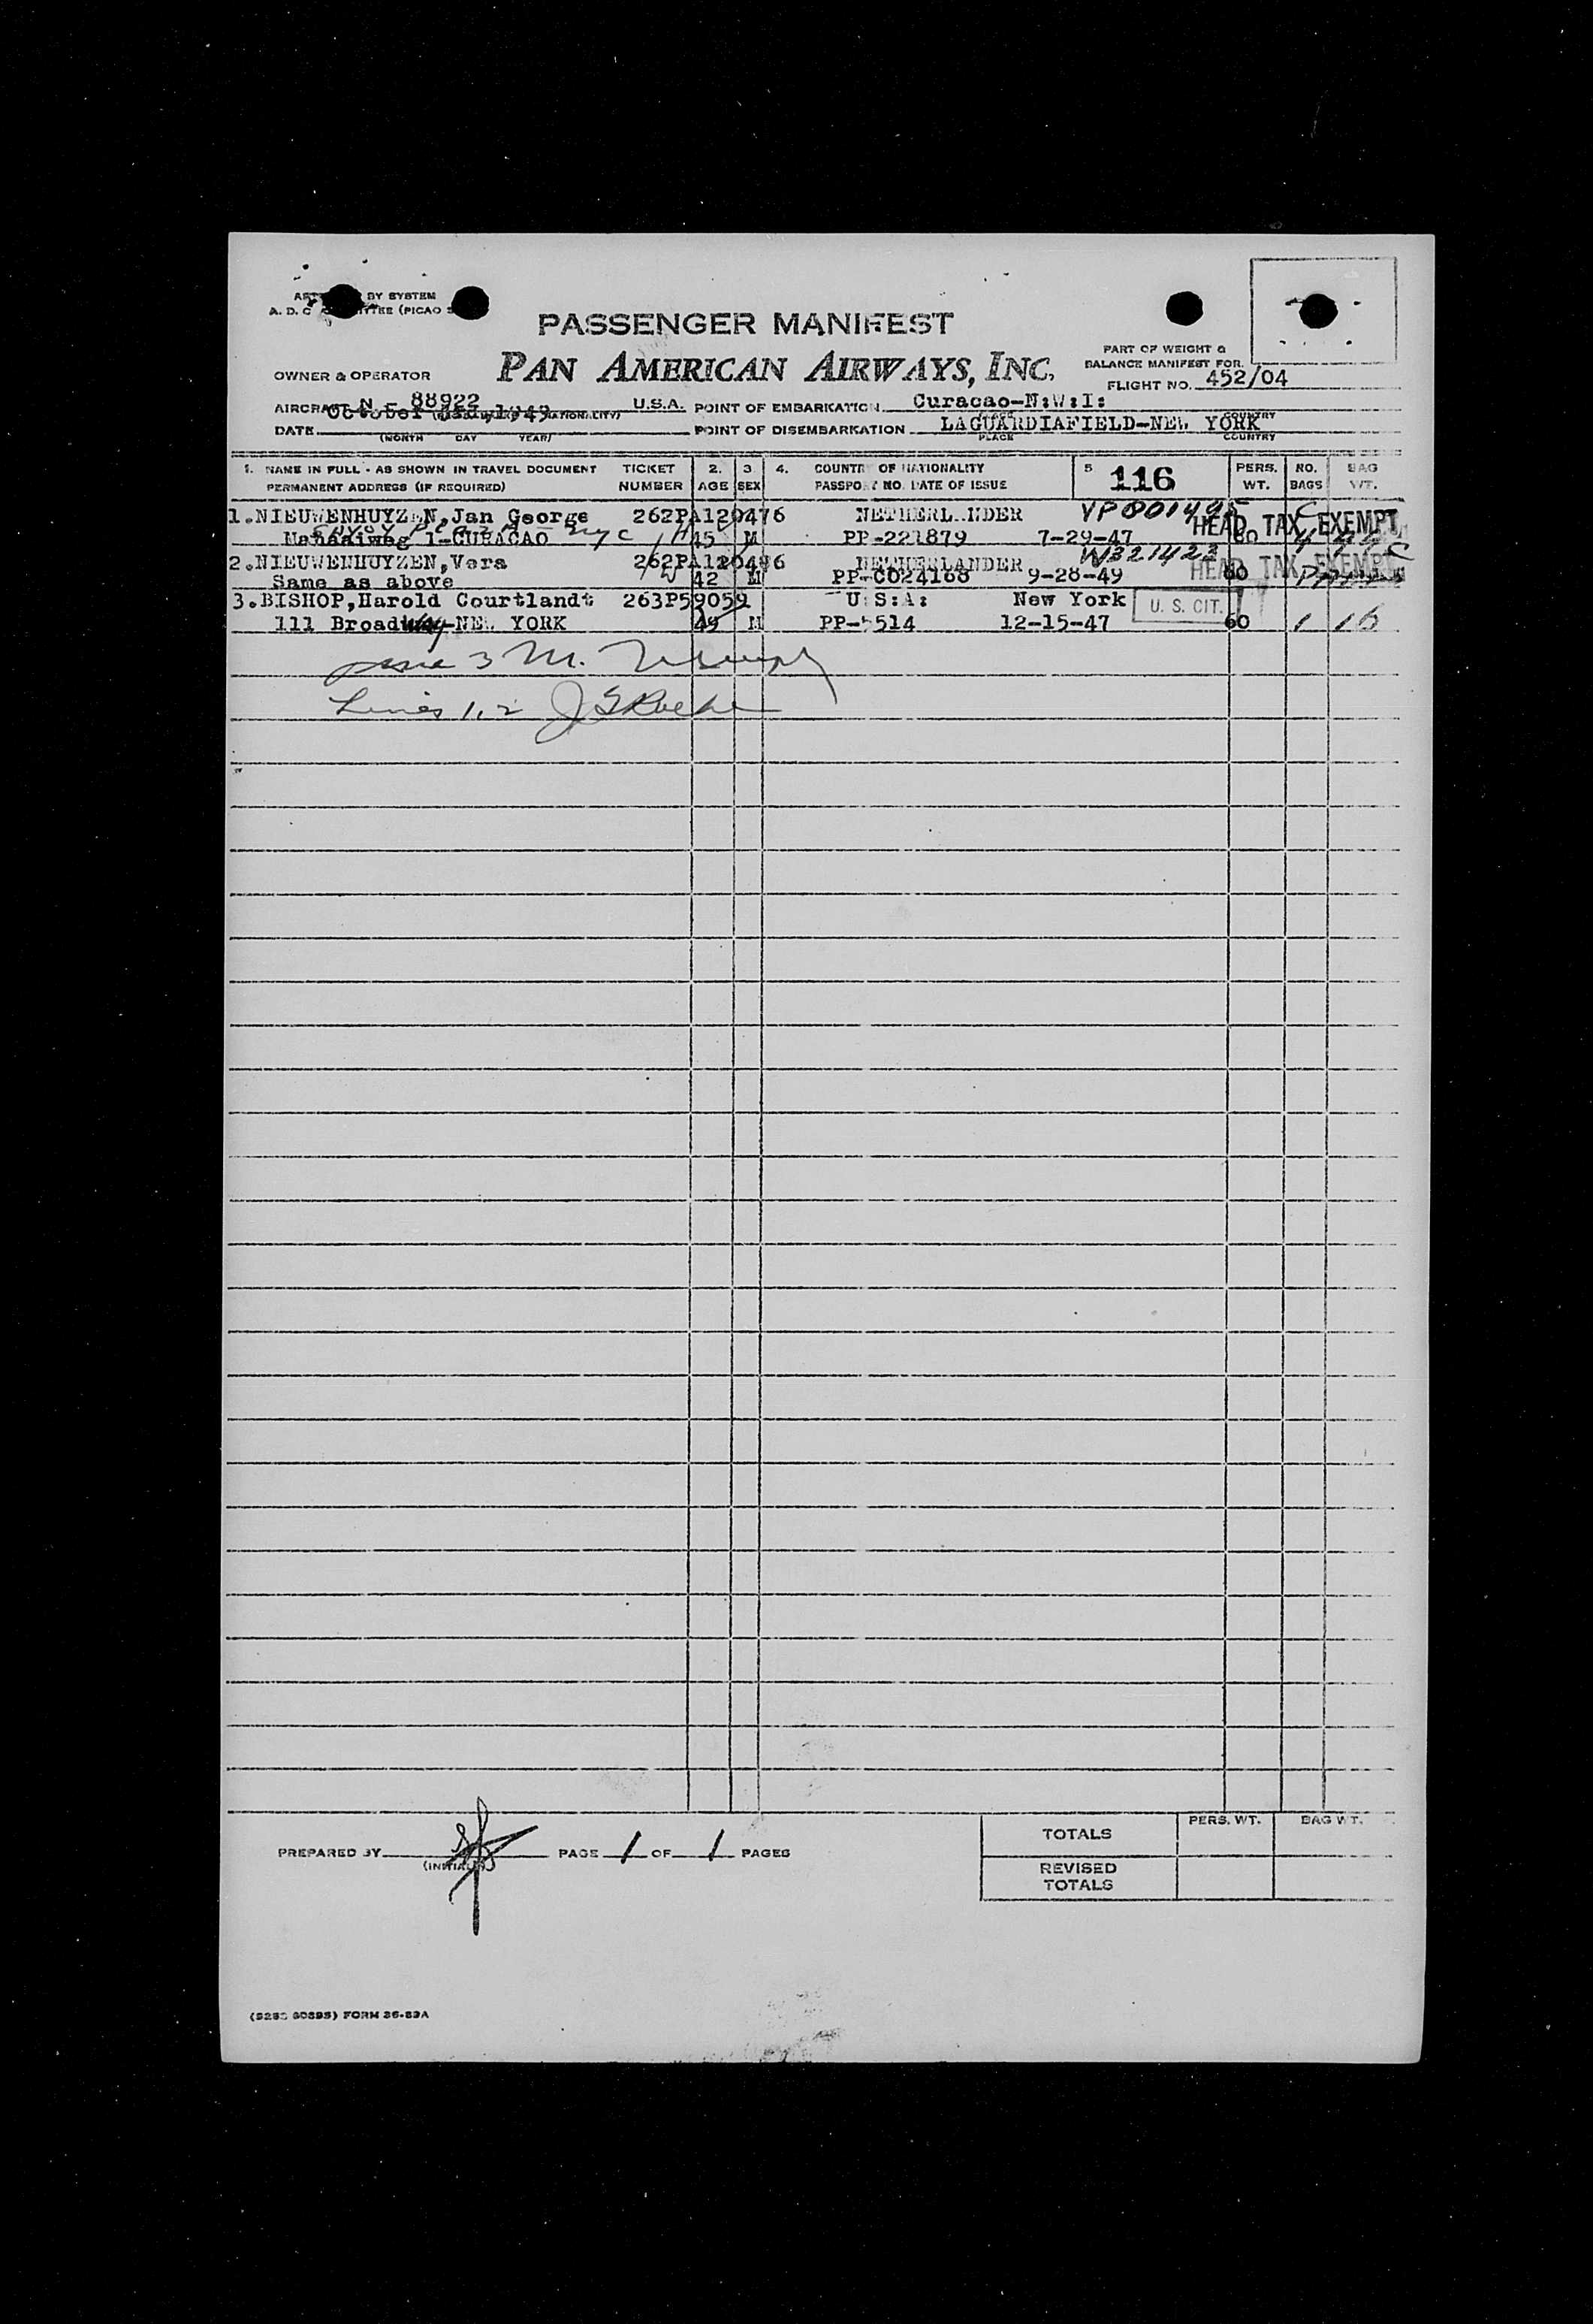 BY SYSTEM
A. D. C (PICAO
PASSENGER MANIFEST
PAN AMERICAN AIRWAYS, INC.
PART OF WEIGHT &
BALANCE MANIFEST FOR.
OWNER & OPERATOR
FLIGHT NO. 452/04
AIRCRAFT N - 88922 U.S.A. POINT OF EMBARKATION Curacao-N:W:I:
DATE October 1949 POINT OF DISEMBARKATION LAGUARDIAFIELD-NEW YORK
(MONTH DAY YEAR) PLACE COUNTRY
1. NAME IN FULL - AS SHOWN IN TRAVEL DOCUMENT TICKET 2. 3 4. COUNTRY OF NATIONALITY 5 116 PERS. NO. BAG
PERMANENT ADDRESS (IF REQUIRED) NUMBER AGE SEX PASSPORT NO. DATE OF ISSUE WT. BAGS WT.
1.NIEUWENHUYZEN,Jan George 262PA120476 NETHERLANDER VP001495 HEAD TAX EXEMPT
Savoy Plaza - NYC
1-CURACAO 45 M PP-221879 7-29-47 80
2.NIEUWENHUYZEN,Vera 262PA120486 NETHERLANDER W321423 HEAD TAX EXEMPT
Same as above 42 M PP-C024168 9-28-49 60
3.BISHOP,Harold Courtlandt 263P59059 U:S:A: New York U. S. CIT.
111 Broadway-NEW YORK 49 M PP-5514 12-15-47 60 1 16
3 M.
Lines 1,2 J G Roche
PREPARED BY (INITIALS) PAGE 1 OF 1 PAGES
TOTALS PERS. WT. BAG WT.
REVISED
TOTALS
FORM 36-83A